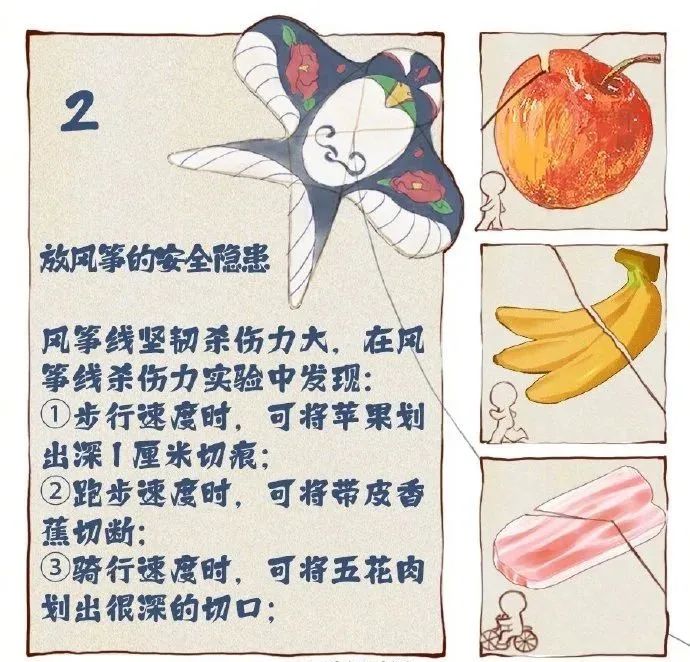 2
放风筝的安全隐患
风筝线坚韧杀伤力大，在风
筝线杀伤力实验中发现：
①步行速度时，可将苹果划
出深1厘米切痕；
②跑步速度时，可将带皮香
蕉切断；
③骑行速度时，可将五花肉
划出很深的切口；